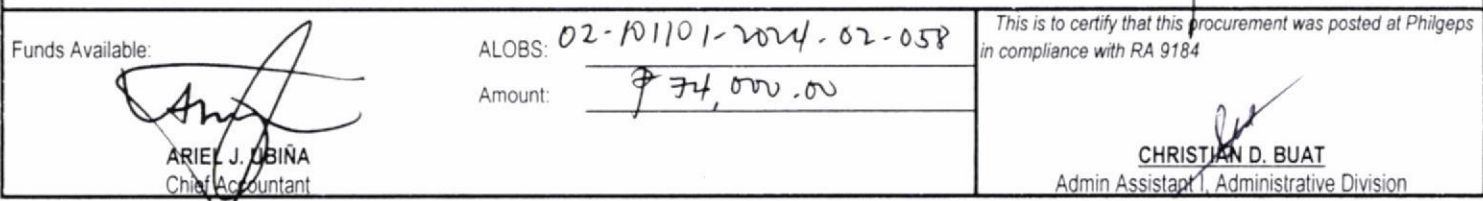 Funds Available:
ARIEL J. UBIÑA
Chief Accountant
ALOBS: 02-101101-2024-02-058
Amount: ₱ 74,000.00
This is to certify that this procurement was posted at Philgeps
in compliance with RA 9184
CHRISTIAN D. BUAT
Admin Assistant I, Administrative Division